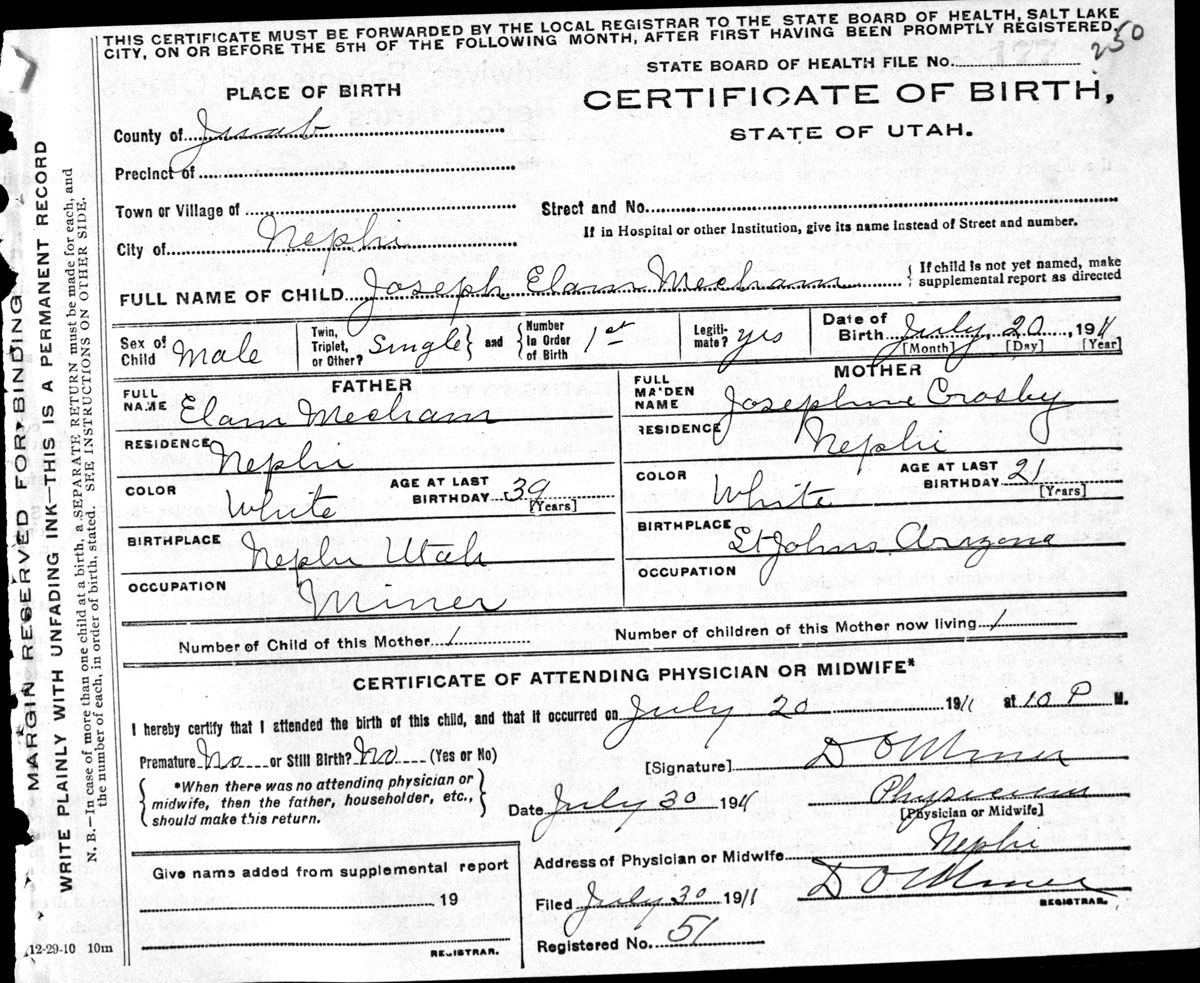 THIS CERTIFICATE MUST BE FORWARDED BY THE LOCAL REGISTRAR TO THE STATE BOARD OF HEALTH, SALT LAKE
CITY, ON OR BEFORE THE 5TH OF THE FOLLOWING MONTH, AFTER FIRST HAVING BEEN PROMPTLY REGISTERED.
250
STATE BOARD OF HEALTH FILE No.
PLACE OF BIRTH
CERTIFICATE OF BIRTH,
STATE OF UTAH.
County of Juab
Precinct of
Town or Village of
Street and No.
If in Hospital or other Institution, give its name instead of Street and number.
City of Nephi
FULL NAME OF CHILD Joseph Elam Mecham { If child is not yet named, make supplemental report as directed
Sex of Child Male Twin, Triplet, or Other? Single } and { Number In Order of Birth 1st Legiti- mate? yes Date of Birth July 20, 1911
[Month] [Day] [Year]
FATHER
FULL NAME Elam Mecham
RESIDENCE Nephi
COLOR White AGE AT LAST BIRTHDAY 39 [Years]
BIRTHPLACE Nephi Utah
OCCUPATION Miner
MOTHER
FULL MAIDEN NAME Josephine Crosby
RESIDENCE Nephi
COLOR White AGE AT LAST BIRTHDAY 21 [Years]
BIRTHPLACE St Johns Arizona
OCCUPATION
Number of Child of this Mother 1 Number of children of this Mother now living 1
CERTIFICATE OF ATTENDING PHYSICIAN OR MIDWIFE*
I hereby certify that I attended the birth of this child, and that it occurred on July 20 1911 at 10 P M.
Premature No or Still Birth? No (Yes or No)
{ *When there was no attending physician or
midwife, then the father, householder, etc.,
should make this return. }
[Signature] D O Miner
Date July 30 1911 Physician
[Physician or Midwife]
Address of Physician or Midwife Nephi
Filed July 30 1911 D O Miner
REGISTRAR.
Registered No. 51
Give name added from supplemental report
19
REGISTRAR.
12-29-10 10m
MARGIN RESERVED FOR BINDING
WRITE PLAINLY WITH UNFADING INK—THIS IS A PERMANENT RECORD
N. B.—In case of more than one child at a birth, a SEPARATE RETURN must be made for each, and
the number of each, in order of birth, stated. SEE INSTRUCTIONS ON OTHER SIDE.